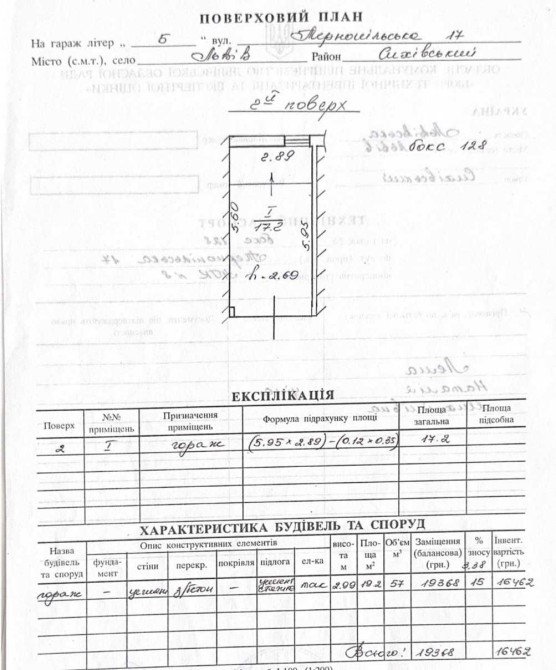 ПОВЕРХОВИЙ ПЛАН
На гараж літер „ Б “ вул. Тернопільська 17
Місто (с.м.т.), село Львів Район Сихівський
2й поверх
бокс 128
2.89
5.60
I
17.2
5.95
h-2.69
ЕКСПЛІКАЦІЯ
Поверх №№ приміщень Призначення приміщень Формула підрахунку площі Площа загальна Площа підсобна
2 I гараж (5.95 × 2.89) - (0.12 × 0.35) 17.2
ХАРАКТЕРИСТИКА БУДІВЕЛЬ ТА СПОРУД
Назва будівель та споруд Опис конструктивних елементів висота м Площа м² Об'єм м³ Заміщення (балансова) (грн.) % зносу Інвент. вартість (грн.)
фундамент стіни перекр. покрівля підлога ел-ка
гараж – з/бетон – 19368 15 16462
Всього: 19368 16462